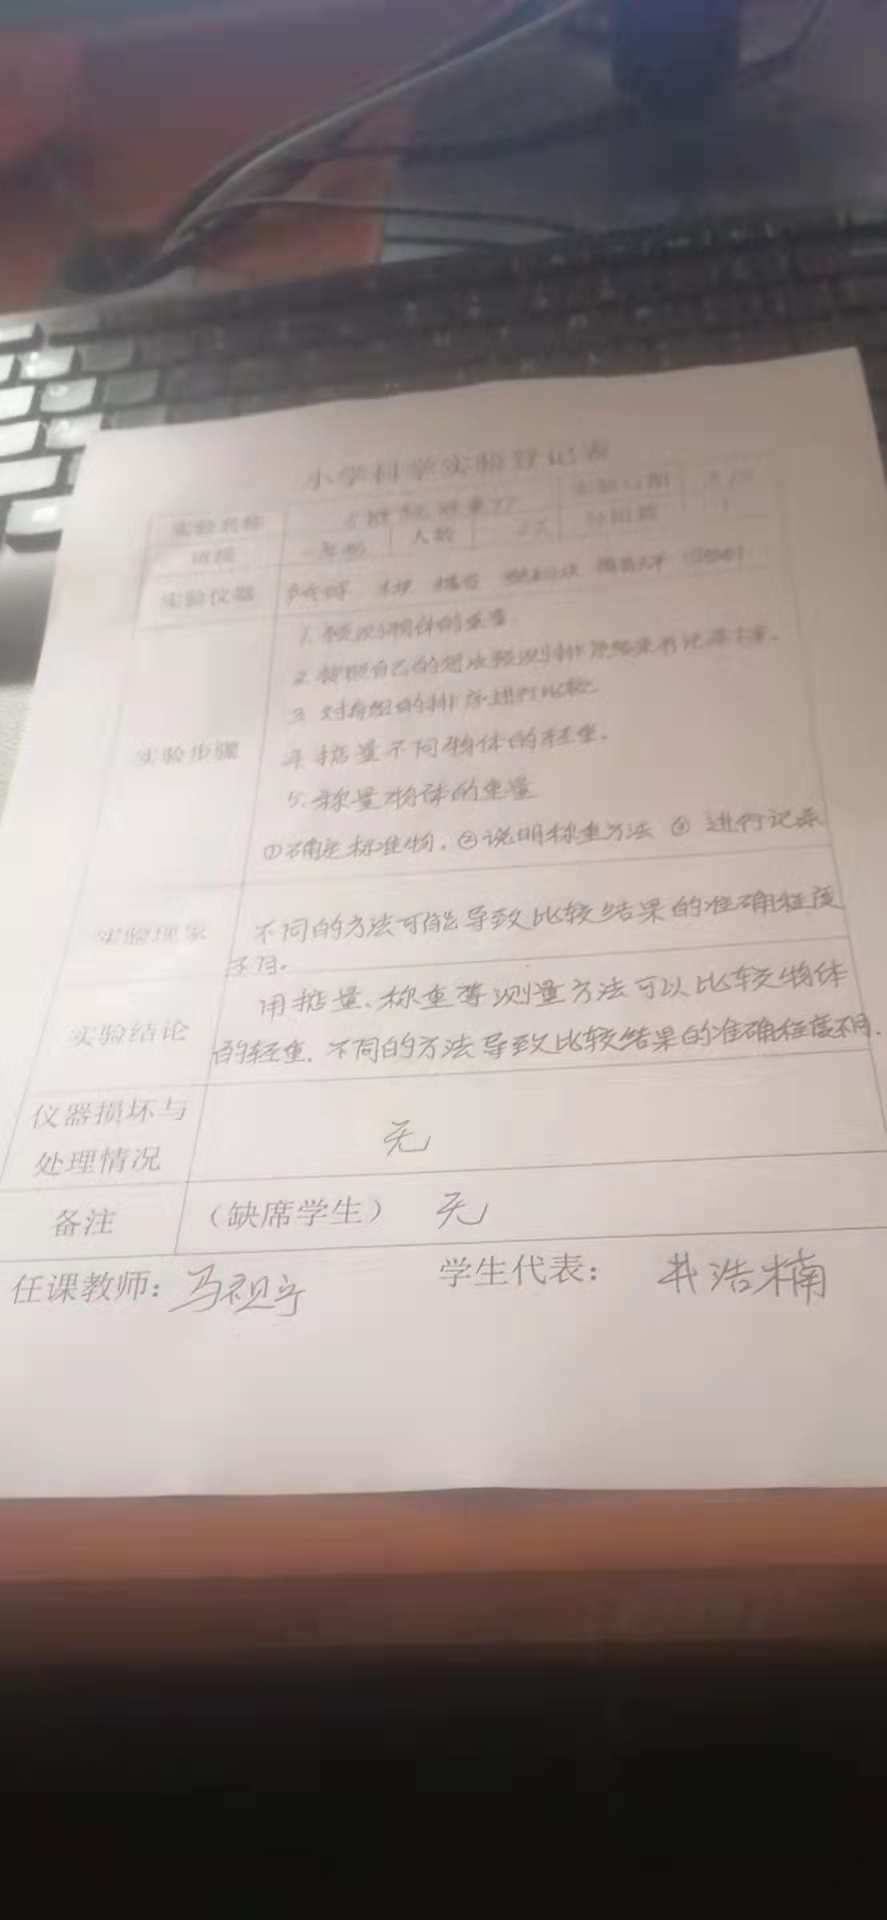 小学科学实验登记表
实验名称 谁轻谁重 实验日期
班级 一年级 人数 分组数
实验仪器 乒乓球 木块
1. 预测物体的重量
2. 按照自己的想法预测排序结果并记录下来.
3. 对每组的排序进行比较
实验步骤 4. 掂量不同物体的轻重.
5. 称量物体的重量
①确定标准物. ②说明称重方法 ③ 进行记录
实验现象 不同的方法可能导致比较结果的准确程度
不同.
用掂量、称重等测量方法可以比较物体
实验结论 的轻重. 不同的方法导致比较结果的准确程度不同.
仪器损坏与
处理情况 无
备注 (缺席学生) 无
任课教师: 学生代表: 井浩楠